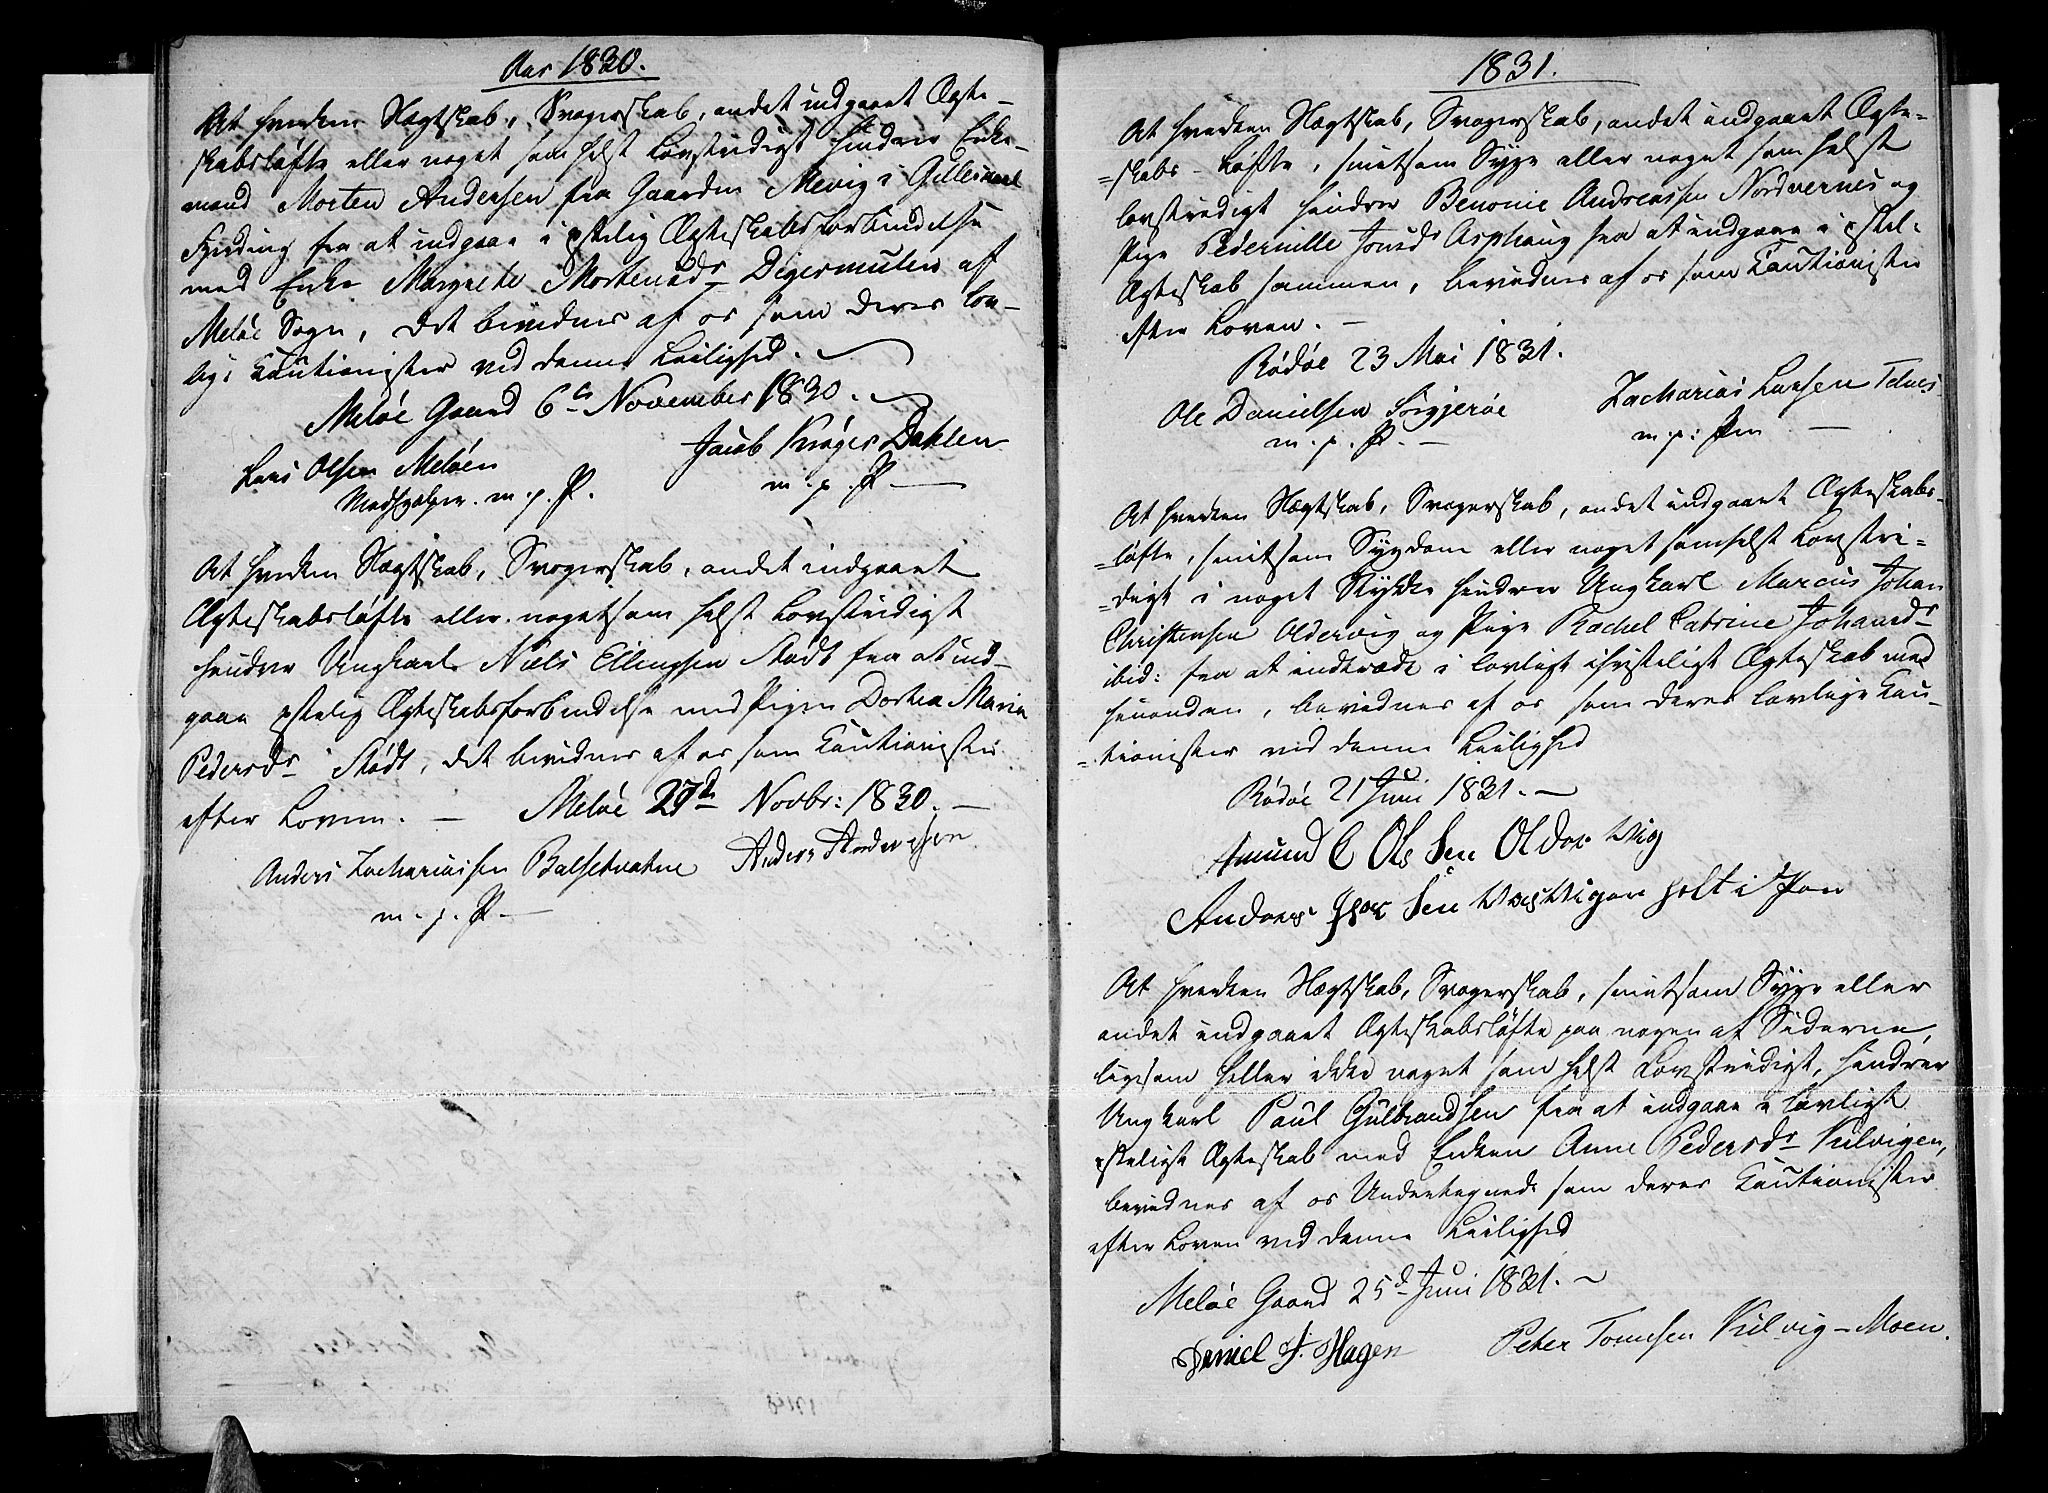 Aar 1830.
At hverken Slægtskab, Svogerskab, andet indgaaet Ægte-
skabsløfte eller noget som helst Lovstridigt hindrer Enke-
mand Morten Andersen fra Gaarden Mevig i Gilleskaal
Fjerding fra at indgaae i xstelig Ægteskabsforbindelse
med Enke Margrete Mortensdr Digermulen af
Meløe Sogn, det bevidnes af os som deres lov-
lige Cautionister ved denne Leilighed.
Meløe Gaard 6te November 1830.
Lars Olsen Meløen Jacob Krøger Dahlen
Medhjelper. m. p. P. m. p. P.
At hverken Slægtskab, Svogerskab, andet indgaaet
Ægteskabsløfte eller noget som helst Lovstridigt
hindrer Ungkarl Niels Ellingsen Stødt fra at ind-
gaae xstelig Ægteskabsforbindelse med Pigen Dorthea Maria
Pedersdr Stødt, det bevidnes af os som Cautionister
efter Loven. - Meløe 27d Novbr: 1830. -
Anders Zachariassen Balsetvatne Anders Andersen
m. p. P. -
1831.
At hverken Slægtskab, Svogerskab, andet indgaaet Ægte-
=skabs-Løfte, smitsom Syge eller noget som helst
lovstridigt hindrer Benonie Andreassen Nordvernes og
Pige Pedernille Jonsdr Asphaug fra at indgaae i xstel:
Ægteskab sammen, bevidnes af os som Cautionister
efter Loven. -
Rødøe 23 Mai 1831.
Ole Danielsen Sørgjerøe Zacharias Larsen Telnes
m. p. P. - m. p: Pen -
At hverken Slægtskab, Svogerskab, andet indgaaet Ægteskabs-
=løfte, smitsom Sygdom eller noget somhelst Lovstri-
=digt i noget Stykke hindrer Ungkarl Marcus Johan
Christensen Oldervig og Pige Rachel Catrine Johansdr
ibid: fra at indtræde i lovligt christeligt Ægteskab med
hinanden, bevidnes af os som deres lovlige Cau-
=tionister ved denne Leilighed
Rødøe 21 Juni 1831. -
Amund C Ols Sen Oldervig
Anders Sen holt i Pen
At hverken Slægtskab, Svogerskab, smitsom Syge eller
andet indgaaet Ægteskabsløfte paa nogen af Siderne,
ligesom heller ikke noget som helst Lovstridigt, hindrer
Ungkarl Paul Gulbrandsen fra at indgaae i lovligt
xsteligt Ægteskab med Enken Anne Pedersdr Kilvigen,
bevidnes af os Undertegnede som deres Cautionister
efter Loven ved denne Leilighed
Meløe Gaard 25d Juni 1831. -
Daniel J. Hagen Peter Tomesen Kilvig-Moen.